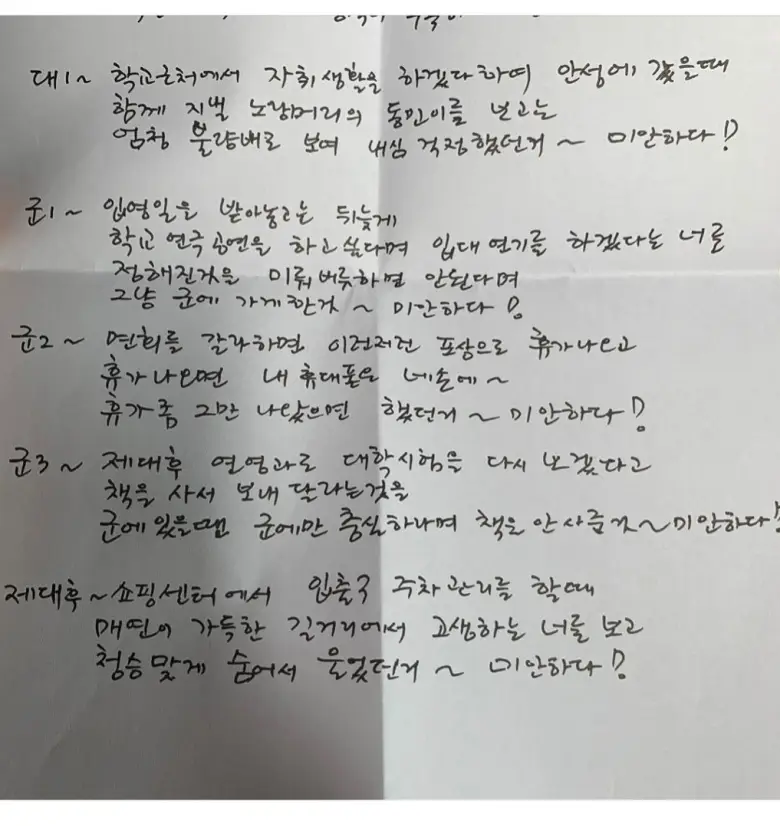 대1~ 학교근처에서 자취생활을 하겠다하여 안성에 갔을때
함께 지낼 노랑머리의 동민이를 보고는
엄청 불량배로 보여 내심 걱정했던거~ 미안하다!
군1~ 입영일을 받아놓고는 뒤늦게
학교 연극공연을 하고싶다며 입대연기를 하겠다는 너를
정해진것을 미뤄버릇하면 안된다며
그냥 군에 가게한것~ 미안하다!
군2~ 면회를 갈라하면 이런저런 포상으로 휴가나오고
휴가나오면 내 휴대폰은 네손에~
휴가좀 그만 나왔으면 했던거~ 미안하다!
군3~ 제대후 연영과로 대학시험을 다시 보겠다고
책을 사서 보내 달라는것을
군에있을땐 군에만 충실하라며 책을 안사준거~미안하다!
제대후~쇼핑센터에서 입출구 주차관리를 할때
매연이 가득한 길거리에서 고생하는 너를 보고
청승맞게 숨어서 울었던거~ 미안하다!